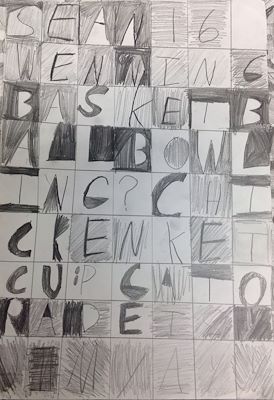 SEAN 16
WENNING
BASKETB
ALLBOWL
ING?CHI
CKENKET
CUPGATO
RADE